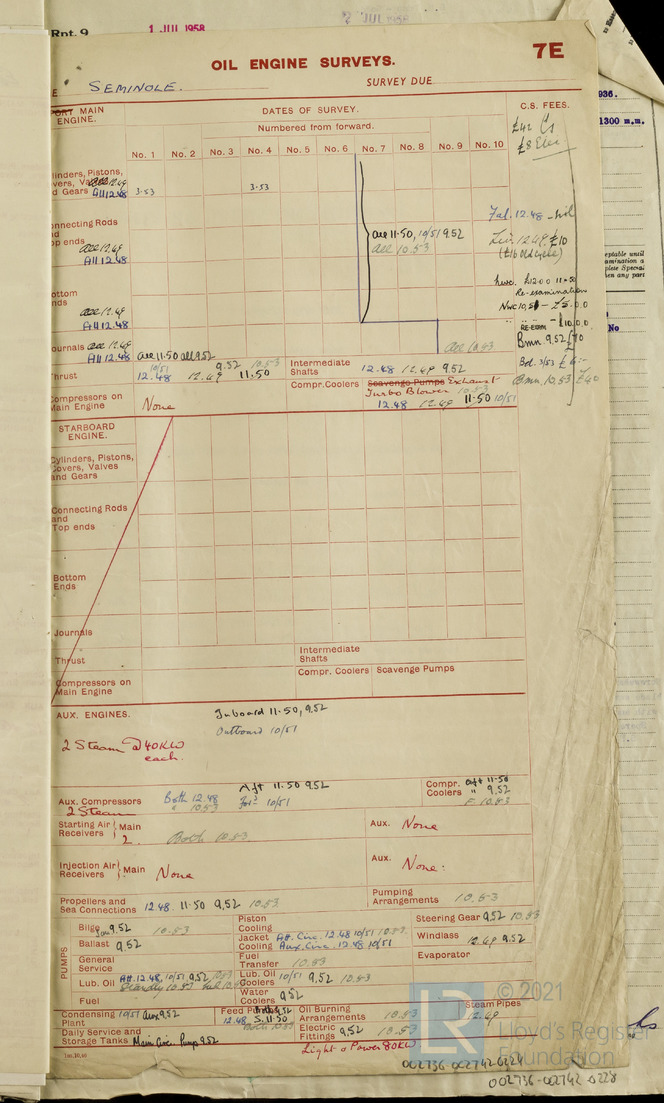 Rpt. 9
1 JUL 1958
2 JUL 1958
7E
OIL ENGINE SURVEYS.
SEMINOLE.
SURVEY DUE
PORT MAIN ENGINE.
DATES OF SURVEY.
C.S. FEES.
Numbered from forward.
No. 1 No. 2 No. 3 No. 4 No. 5 No. 6 No. 7 No. 8 No. 9 No. 10
£42 Cs
£8 Elec
936.
1300 m.m.
linders, Pistons,
vers, Va
d Gears All 12.48
3.53 3.53
Fal. 12.48 - Nil
onnecting Rods
nd
op ends
All 12.49
All 12.48
All 11.50, 10/51 9.52
All 10.53
Liv. 12.48. £10
(£16 old cycle)
Newc. £12.0.0 11-50
Re-examination
ottom
nds
All 12.49
All 12.48
RE-EXAM - £10.0.0
Bmn. 9.52 £70
ournals All 12.49
All 12.48
All 11.50 All 9.52
All 10.53
hrust
10/51
12.48 12.49 9.52 11.50 10.53
Intermediate
Shafts
12.48 12.49 9.52
Bmn. 10.53 £40
Compr. Coolers
Scavenge Pumps Exhaust
Turbo Blower 10.53
12.48 12.49 11.50 10/51
ompressors on
Main Engine
None
STARBOARD
ENGINE.
Cylinders, Pistons,
Covers, Valves
and Gears
Connecting Rods
and
Top ends
Bottom
Ends
Journals
Thrust
Intermediate
Shafts
Compr. Coolers
Scavenge Pumps
Compressors on
Main Engine
AUX. ENGINES.
Inboard 11.50, 9.52
Outboard 10/51
2 Steam @ 40KW
each.
Aux. Compressors
2 Steam
Both 12.48
" 10.53
Aft 11.50 9.52
For'd 10/51
Compr.
Coolers
Aft 11.50
" 9.52
F 10.53
Starting Air
Receivers
Main
2.
Both 10.53
Aux. None
Injection Air
Receivers
Main None
Aux. None.
Propellers and
Sea Connections
12.48. 11.50 9.52 10.53
Pumping
Arrangements
10.53
PUMPS
Bilge 9.52 10.53
Ballast 9.52
General
Service
Lub. Oil Aft. 12.48, 10/51 9.52 10.53
Fuel
Piston
Cooling
Jacket
Cooling
Aft. Circ. 12.48 10/51 10.53
Aux. Circ. 12.48 10/51
Fuel
Transfer 10.53
Lub. Oil
Coolers 10/51 9.52 10.53
Water
Coolers 9.52
Steering Gear 9.52 10.53
Windlass 12.49 9.52
Evaporator
Condensing
Plant
10/51 Aux 9.52
Feed Pumps
12.48 S. 11.50
Both 10.53
Oil Burning
Arrangements 10.53
Steam Pipes
12.49
Daily Service and
Storage Tanks
Main Circ. Pump 9.52
Electric
Fittings 9.52 10.53
Light & Power 80KW
1m.10.46
© 2021
LR
Lloyd's Register
Foundation
002736-002742-0224
002736-002742-0228